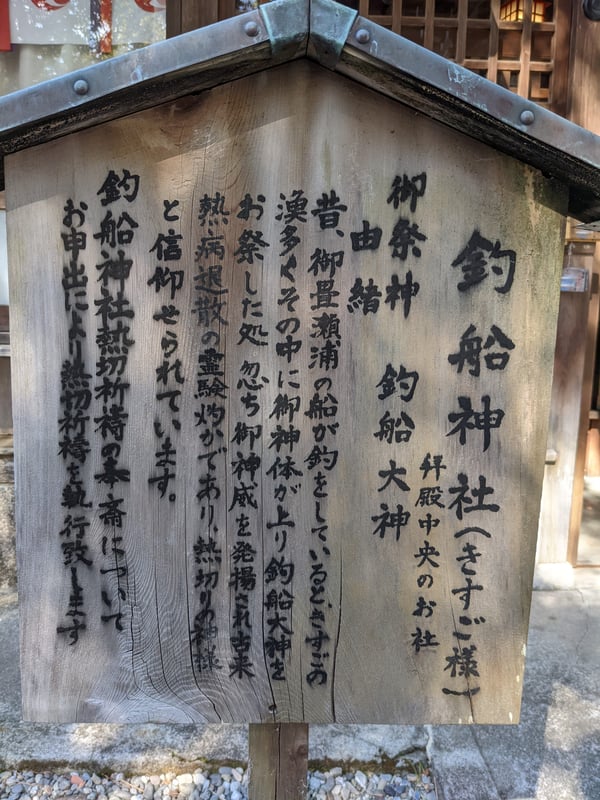 釣船神社(きすご様)
拝殿中央のお社
御祭神 釣船大神
由緒
昔、御畳瀬浦の船が釣をしているときすごの
漁多くその中に御神体が上り釣船大神を
お祭した処 忽ち御神威を発揚され古来
熱病退散の霊験灼かであり、熱切りの神様
と信仰せられています。
釣船神社熱切祈祷の奉斎について
お申出により熱切祈祷を執行致します